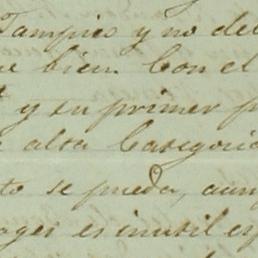 Tampico y no del
e bien. Con el
y su primer p
alta Categoria
to se pueda, aun
ages es inutil es